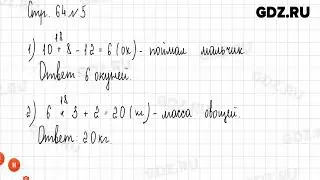 GDZ.RU
Стр. 64 №5
18
1) 10 + 8 - 12 = 6 (ок) - поймал мальчик.
Ответ 6 окуней.
18
2) 6 · 3 + 2 = 20 (кг) - масса овощей.
Ответ: 20 кг.
GDZ.RU